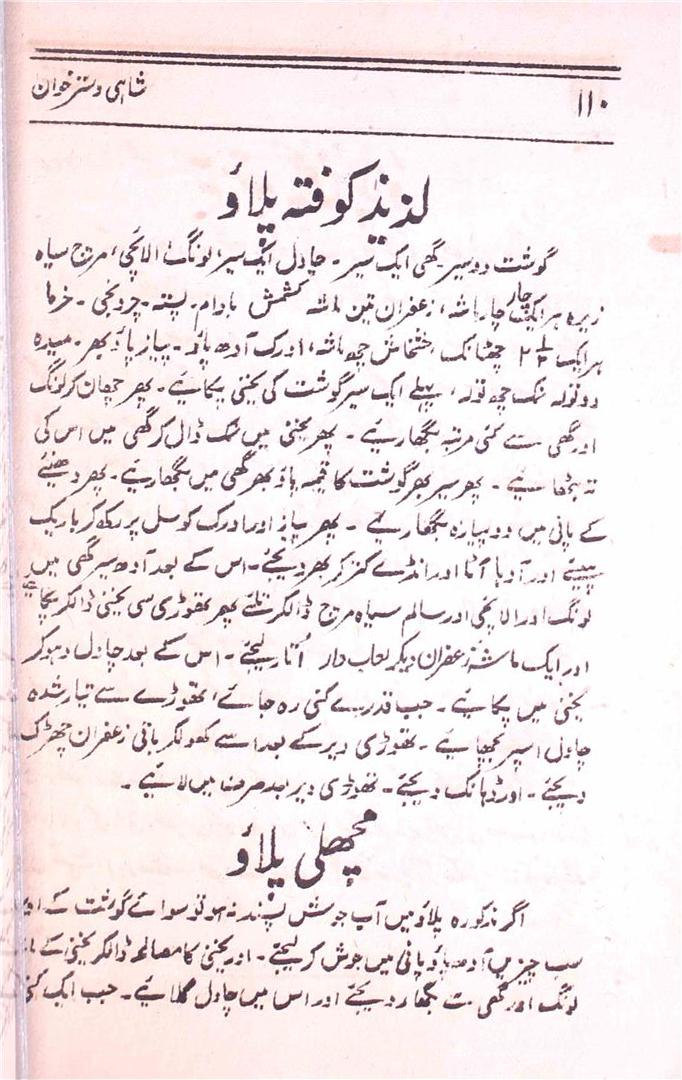 شاہی دسترخوان
۱۱۰
لذیذ کوفتہ پلاؤ
گوشت دو سیر۔ گھی ایک سیر۔ چاول ایک سیر، لونگ، الائچی، مرچ سیاہ
زیرہ ہر ایک چار چار ماشہ، زعفران تین ماشہ کشمش بادام۔ پستہ۔ چرونجی۔ خرما
ہر ایک ۲½ ۲ چھٹانک، خشخاش چھ ماشہ، ادرک آدھ پاؤ۔ پیاز پاؤ بھر۔ میدہ
دو تولہ نمک چھ تولہ، پہلے ایک سیر گوشت کی یخنی پکائیے۔ پھر چھان کر لونگ
اور گھی سے کئی مرتبہ بگھاریئے۔ پھر یخنی میں نمک ڈال کر گھی میں اس کی
تہ بٹھائیے۔ پھر سیر بھر گوشت کا قیمہ پاؤ بھر گھی میں بگھاریئے۔ پھر دھنیئے
کے پانی میں دوبارہ بگھاریئے۔ پھر پیاز اور ادرک کو سل پر رکھ کر باریک
پیسیئے اور آدھا آٹا اور انڈے بھر دیجئے۔ اس کے بعد آدھ سیر گھی میں
لونگ اور الائچی اور سالم سیاہ مرچ ڈالکر تلئے پھر تھوڑی سی یخنی ڈالکر پکائیے
اور ایک ماشہ زعفران دیکر لعاب دار اُتار لیجئے۔ اس کے بعد چاول دہوکر
یخنی میں پکائیے۔ جب قدرے کنی رہ جائے، تھوڑے سے تیار شدہ
چاول اسپر بچھائیے۔ تھوڑی دیر کے بعد اسے کھولکر باقی زعفران چھڑک
دیجئے۔ اور ڈہانک دیجئے۔ تھوڑی دیر بعد صرف میں لائیے۔
مچھلی پلاؤ
اگر مذکورہ پلاؤ میں آپ جوشش پسند نہ ہو تو سوائے گوشت کے
سب چیزیں آدھ پاؤ پانی میں جوش کر لیجئے۔ اور یخنی کا مصالحہ ڈالکر یخنی کے
لونگ اور گھی سے بگھار دیجئے اور اس میں چاول گلائیے۔ جب ایک کنی